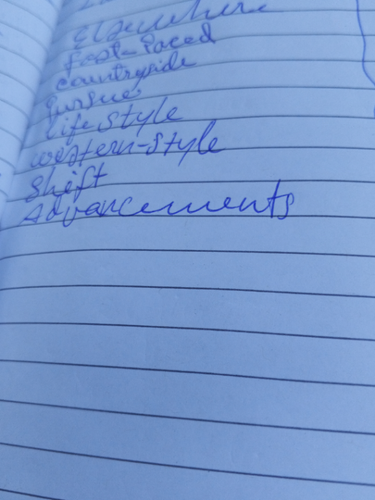 Elsewhere
fast-paced
countryside
pursue
lifestyle
western-style
Shift
Advancements